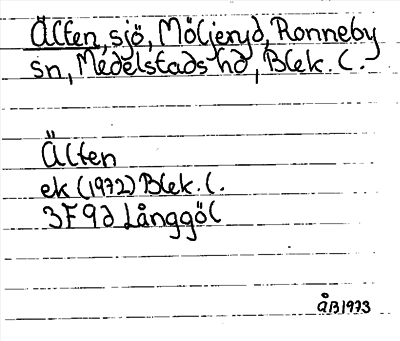 Älten, sjö, Möljeryd, Ronneby
sn, Medelstads hd, Blek. l.
Älten
ek (1972) Blek. l.
3F9d Långgöl
ÅB 1973